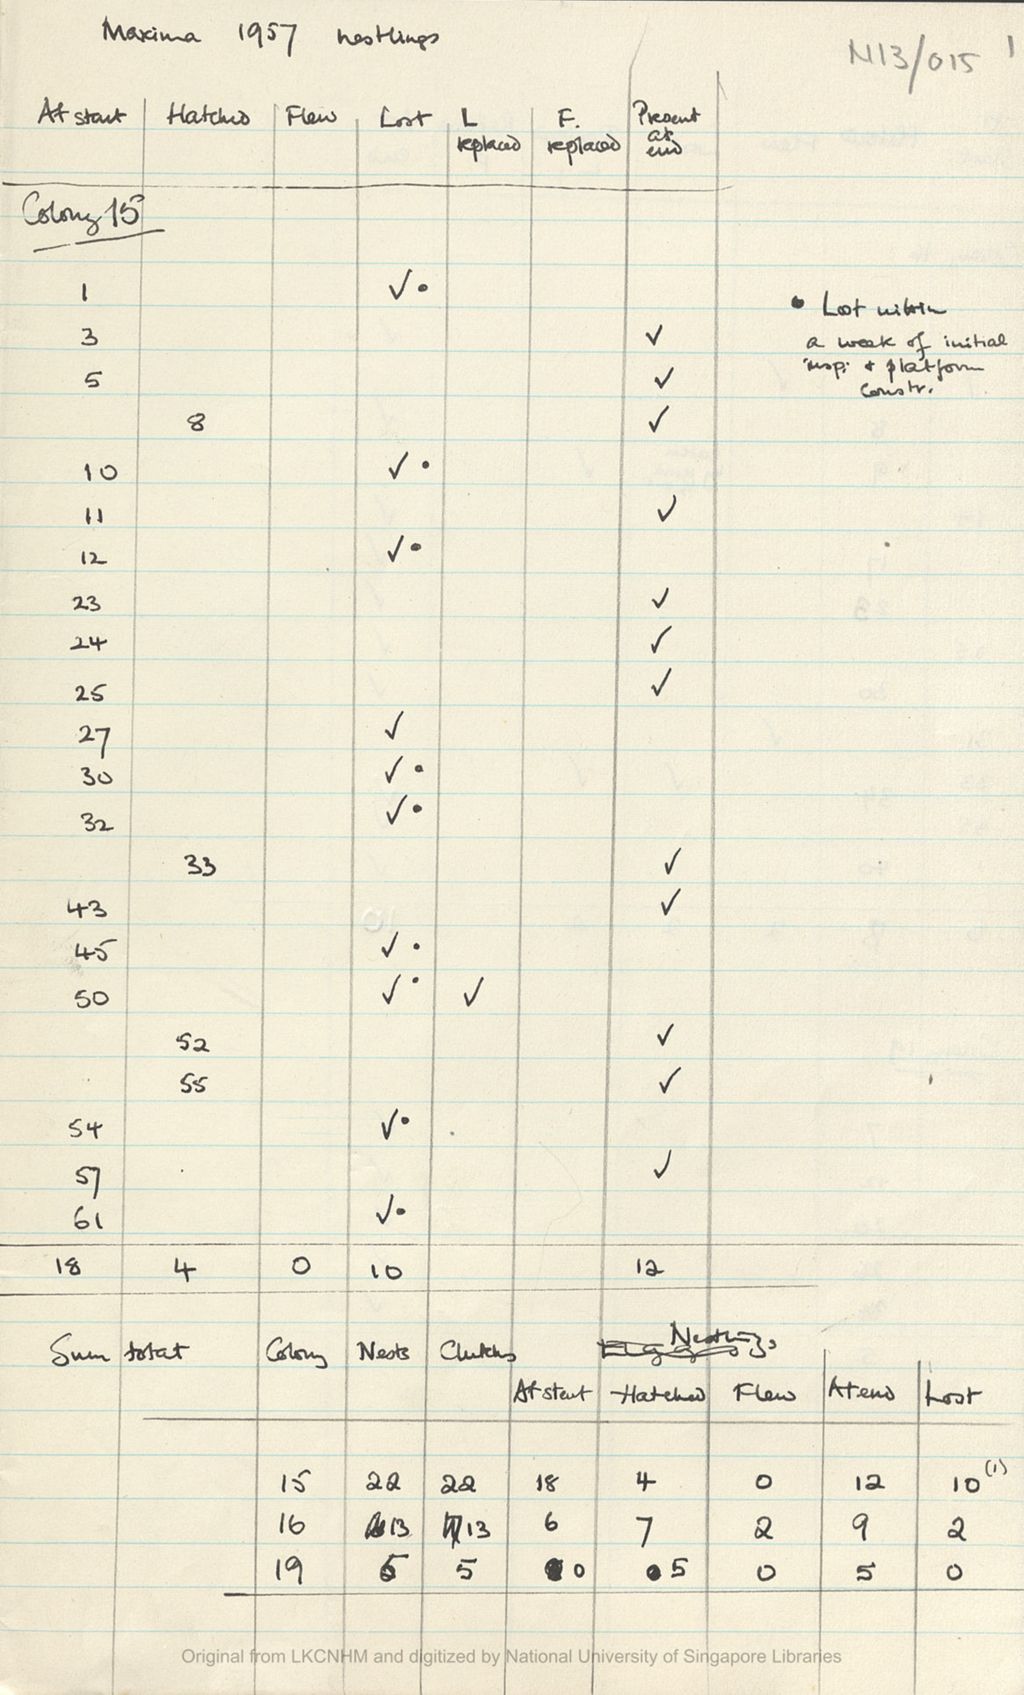 Maxima 1957 nestlings
N13/015 1
At start Hatched Flew Lost L replaced F. replaced Present at end
Colony 15
1 ✓•
• Lost within
3 ✓
a week of initial
5 ✓
insp. + platform
constr.
8 ✓
10 ✓•
11 ✓
12 ✓•
23 ✓
24 ✓
25 ✓
27 ✓
30 ✓•
32 ✓•
33 ✓
43 ✓
45 ✓•
50 ✓• ✓
52 ✓
55 ✓
54 ✓•
57 ✓
61 ✓•
18 4 0 10 12
Sum total Colony Nests Clutches Nestlings
At start Hatched Flew At end Lost
15 22 22 18 4 0 12 10 (1)
16 13 13 6 7 2 9 2
19 5 5 0 5 0 5 0
Original from LKCNHM and digitized by National University of Singapore Libraries